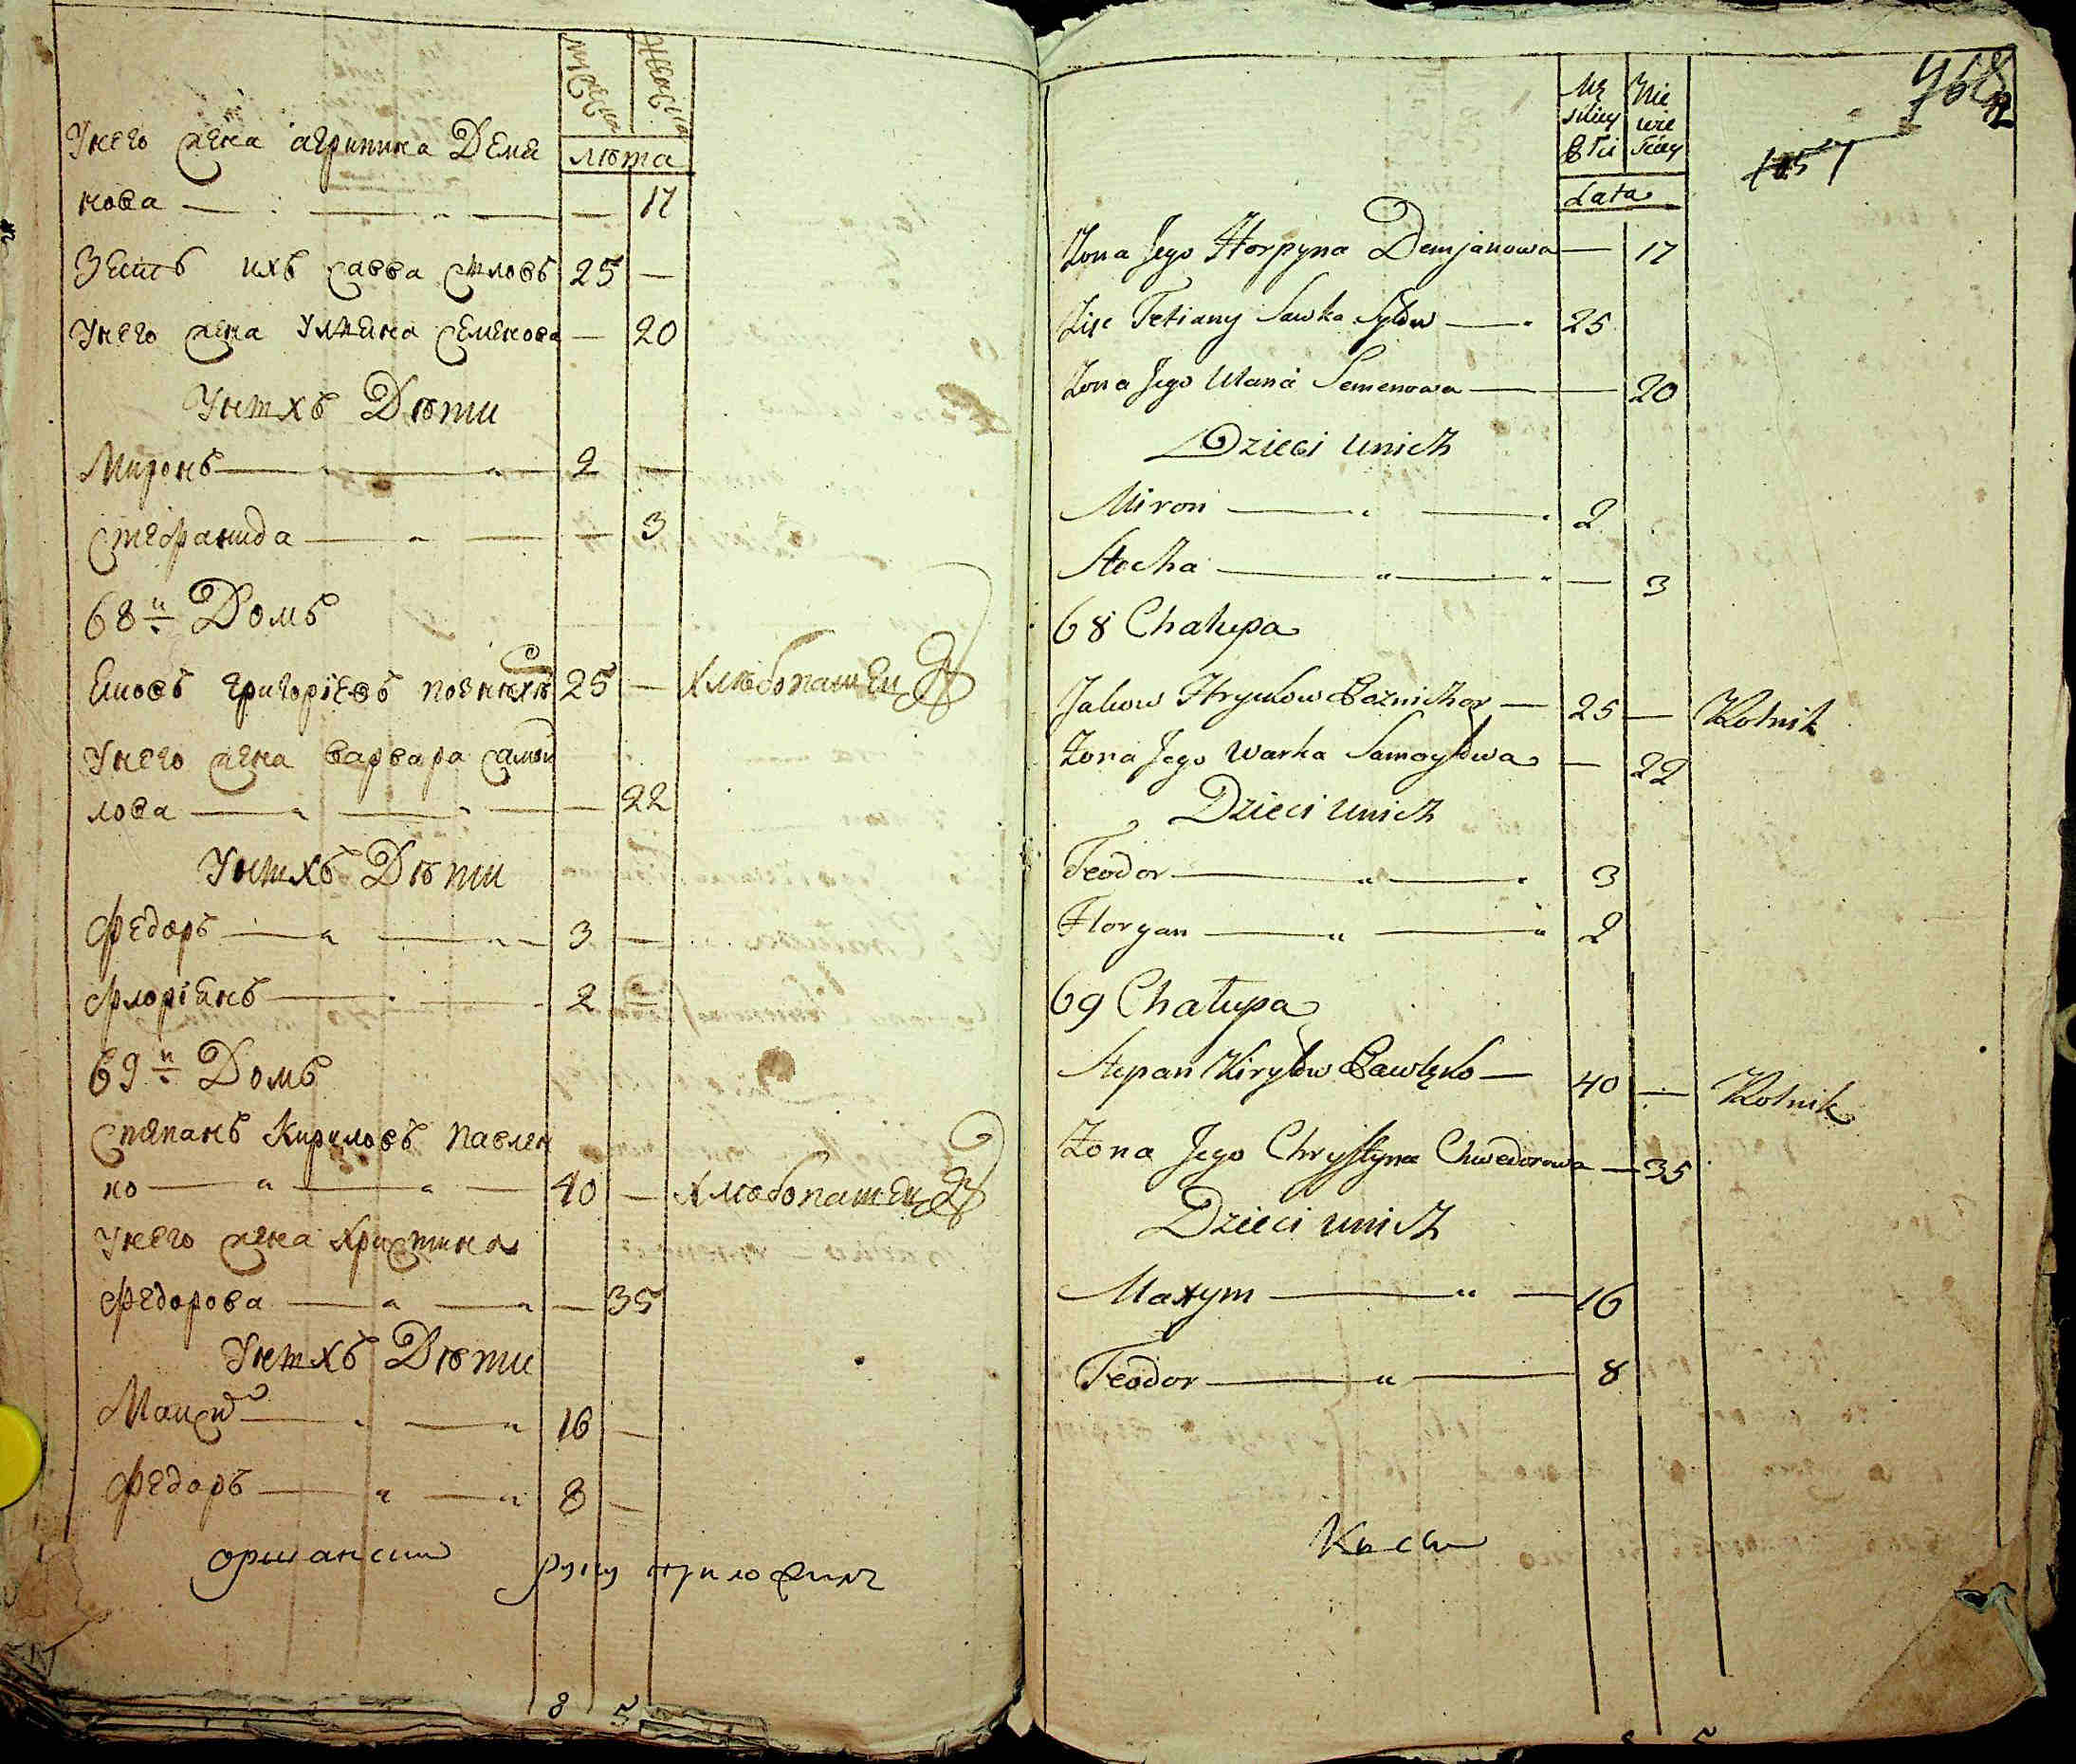 Мужеска
Женска
лѣта
Унего жена агрипина Демя
нова — — — — 17
Зять ихъ савва силовъ 25 —
Унего жена Улияна семенова — 20
Унихъ Дѣти
Миронъ — — 2 —
стефанида — — — 3
68й Домъ
Яковъ григоріевъ познихи 25 — хлѣбопашец
Унего жена варвара самой
лова — — — 22
Унихъ Дѣти
Федоръ — — 3 —
Флоріянъ — — 2 —
69й Домъ
степанъ Кириловъ павлен
ко — — — 40 — хлѣбопашец
Унего жена христина
Федорова — — — 35
Унихъ Дѣти
Максим — — 16 —
Федоръ — — 8 —
руку приложилъ
8 5
768
Mę Nie
skiey wie
Płci sciey
Lata
Żona Jego Horpyna Demjanowa — 17
Zięc Tetiany Sawka Syłow — 25
Żona Jego Ulana Semenowa — — 20
Dzieci unich
Miron — — 2
Stecha — — — 3
68 Chałupa
Jakow Hryckow Poznichor — 25 — Rolnik
Żona Jego Warka Samoyłowa — 22
Dzieci unich
Teodor — — 3
Floryan — — 2
69 Chałupa
Stepan Kiryłow Pawlęko — 40 — Rolnik
Żona Jego Chrystyna Chwedorowa — 35
Dzieci unich
Maxym — — 16
Teodor — — 8